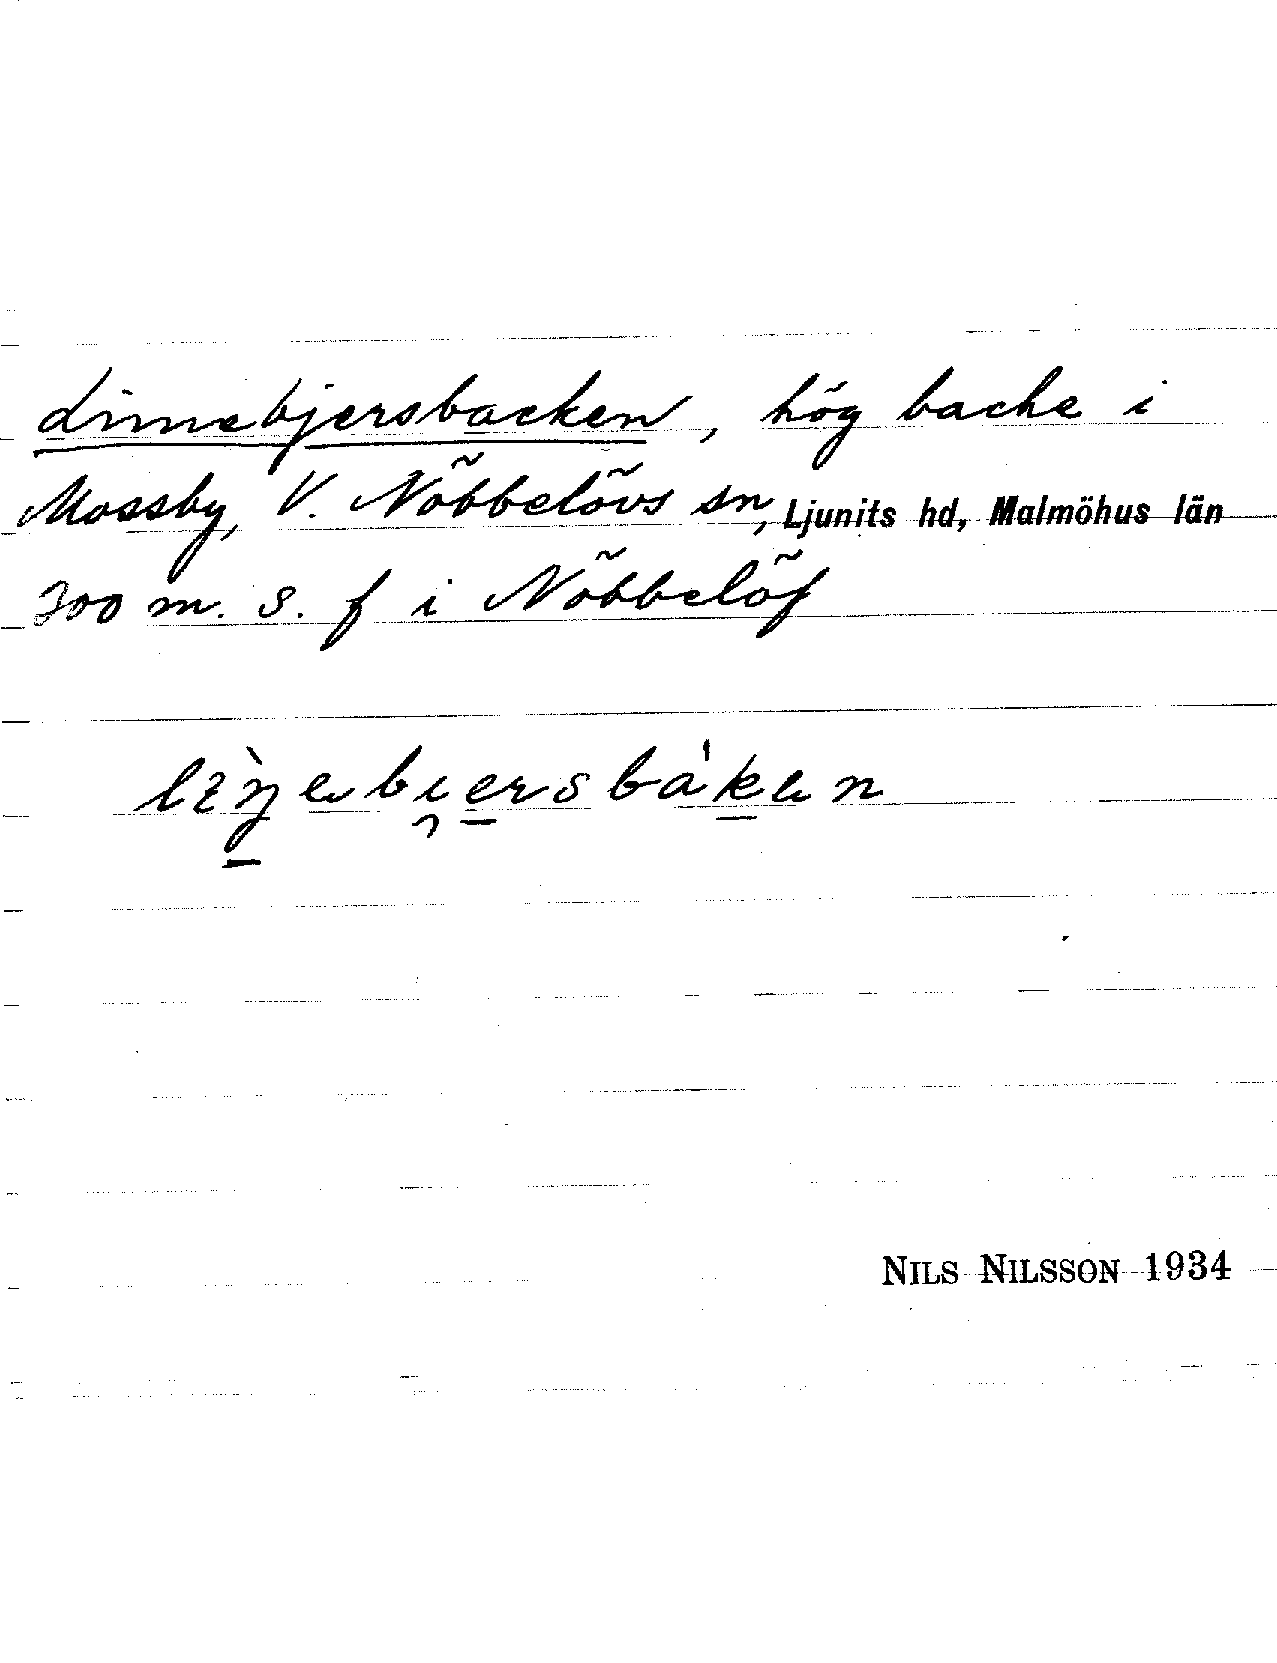 Linnebjersbacken, hög backe i
Mossby, V. Nöbbelövs sn, Ljunits hd, Malmöhus län
300 m. S. f i Nöbbelöf
NILS NILSSON 1934